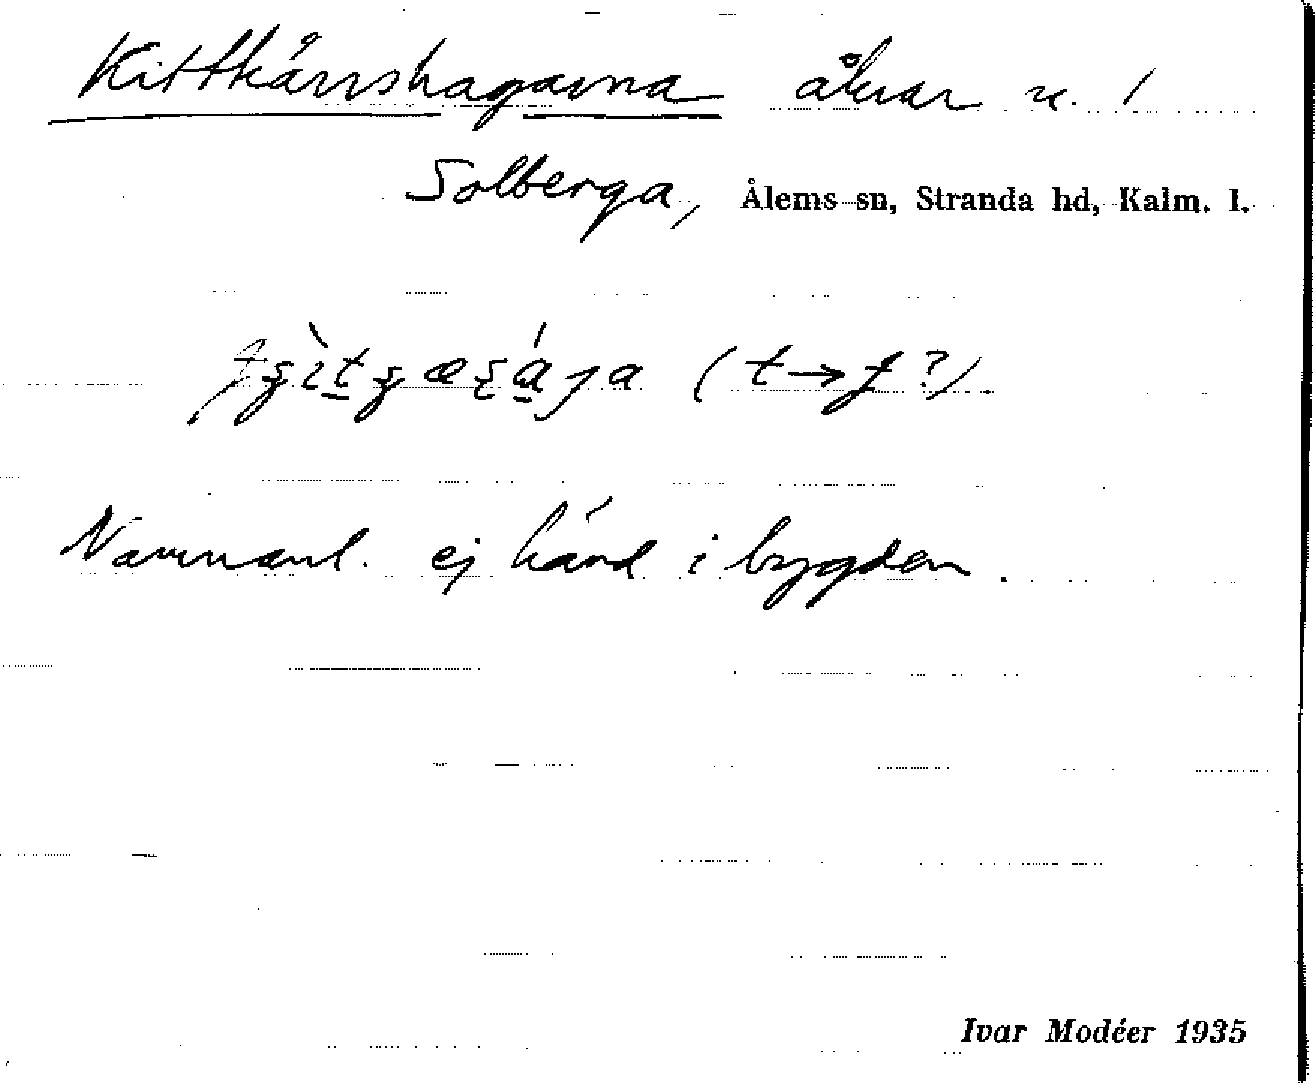 Kittkärrshagarna åkrar n. 1
Solberga, Ålems sn, Stranda hd, Kalm. l.
(t→ƭ?).
Namnanl. ej känd i bygden.
Ivar Modéer 1935